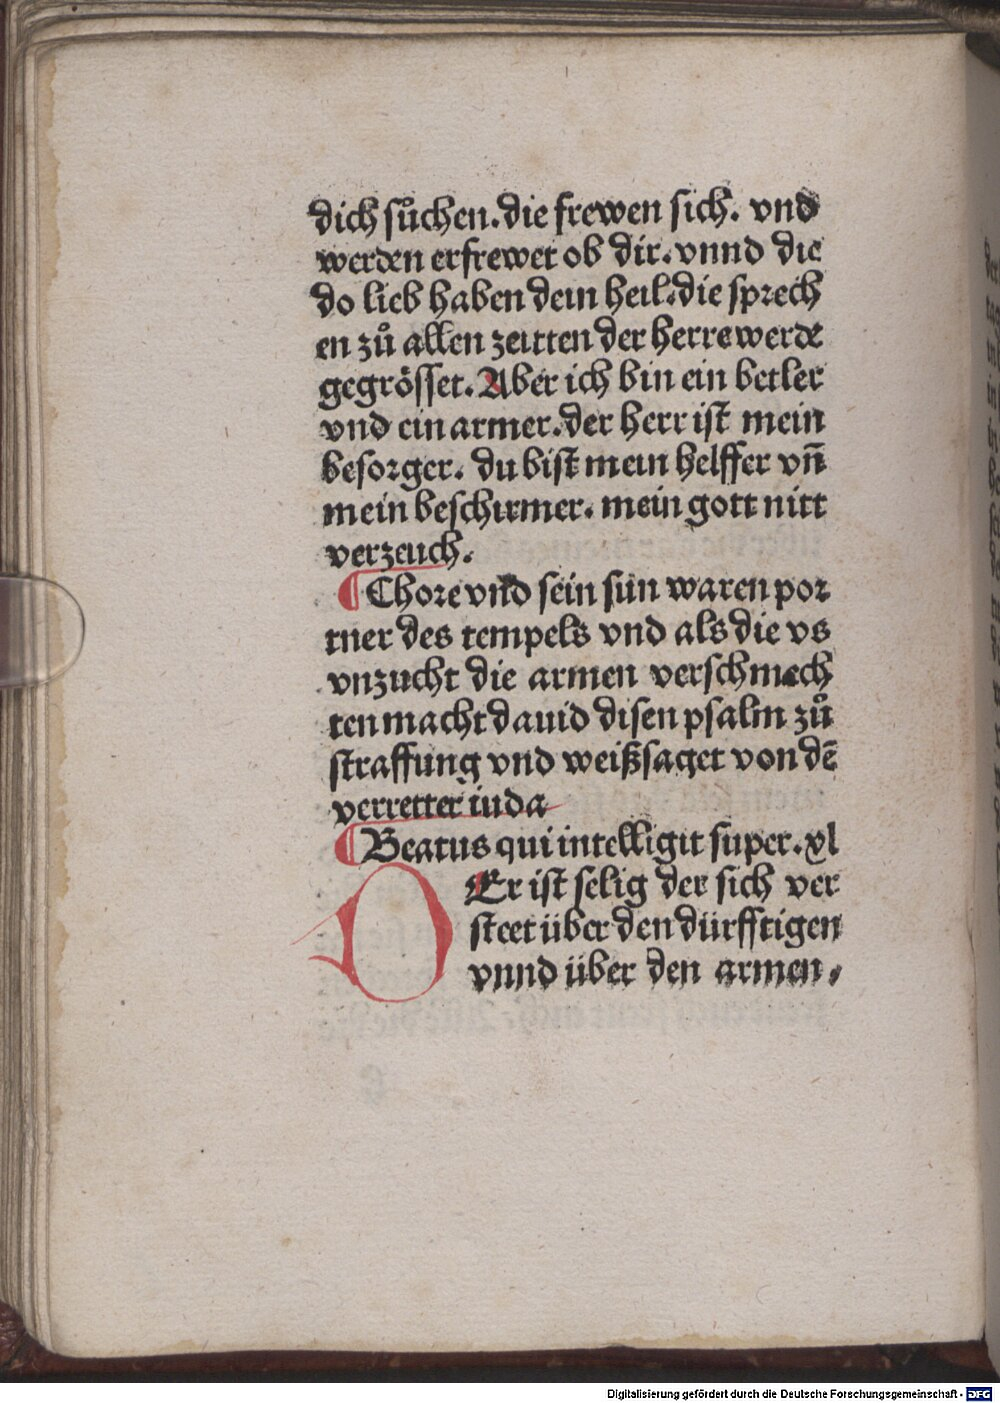 dich sůchen. die frewen sich. vnd
werden erfrewet ob dir. vnnd die
do lieb haben dein heil. die sprech
en zů allen zeitten der herre werde
gegrösset. Aber ich bin ein betler
vnd ein armer. der herr ist mein
besorger. du bist mein helffer vn̄
mein beschirmer. mein gott nitt
verzeuch.
¶ Chore vnd sein sün waren por
tner des tempels vnd als die vs
vnzucht die armen verschmech
ten macht dauid disen psalm zů
straffung vnd weißsaget von dē
verretter iuda
¶ Beatus qui intelligit super. xl
DEr ist selig der sich ver
steet über den dürfftigen
vnnd über den armen,
Digitalisierung gefördert durch die Deutsche Forschungsgemeinschaft - DFG